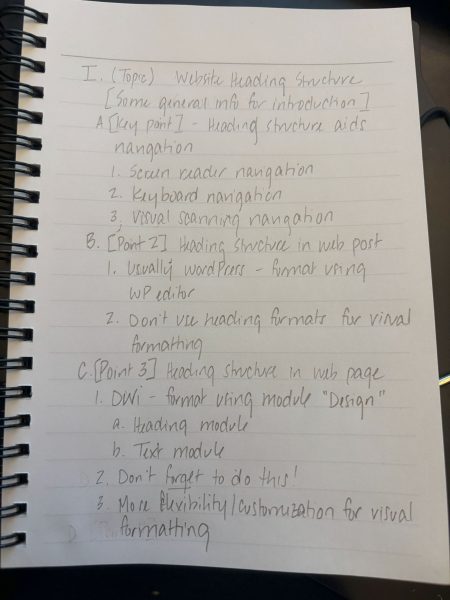 I. (Topic) Website Heading Structure
[Some general info for introduction]
A. [Key point] - Heading structure aids
navigation
1. Screen reader navigation
2. Keyboard navigation
3. Visual scanning navigation
B. [Point 2] Heading structure in web post
1. Usually WordPress - format using
WP editor
2. Don't use heading formats for visual
formatting
C. [Point 3] Heading structure in web page
1. DIVI - format using module "Design"
a. Heading module
b. Text module
2. Don't forget to do this!
3. More flexibility/customization for visual
formatting